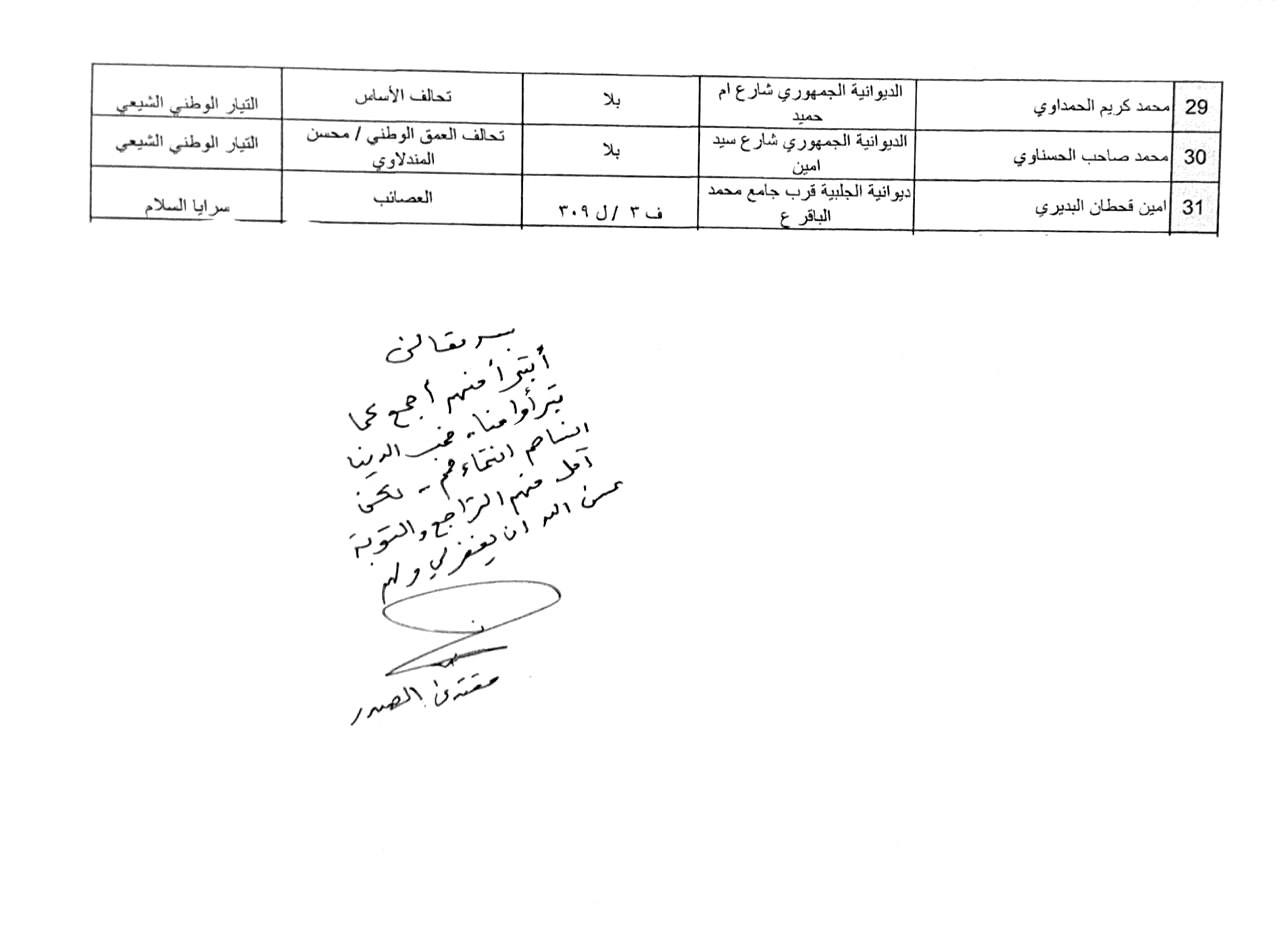 29 محمد كريم الحمداوي الديوانية الجمهوري شارع ام حميد بلا تحالف الأساس التيار الوطني الشيعي
30 محمد صاحب الحسناوي الديوانية الجمهوري شارع سيد امين بلا تحالف العمق الوطني / محسن المندلاوي التيار الوطني الشيعي
31 امين قحطان البديري ديوانية الجلبية قرب جامع محمد الباقر ع ف ٣ / ل ٣٠٩ العصائب سرايا السلام
بسمه تعالى
أتبرأ منهم أجمع كما
يتبرأوا منا.. فحب الدنيا
أنساهم انتماءهم .. لكني
آمل منهم التراجع والتوبة
عسى الله ان يغفر لي ولهم
مقتدى الصدر